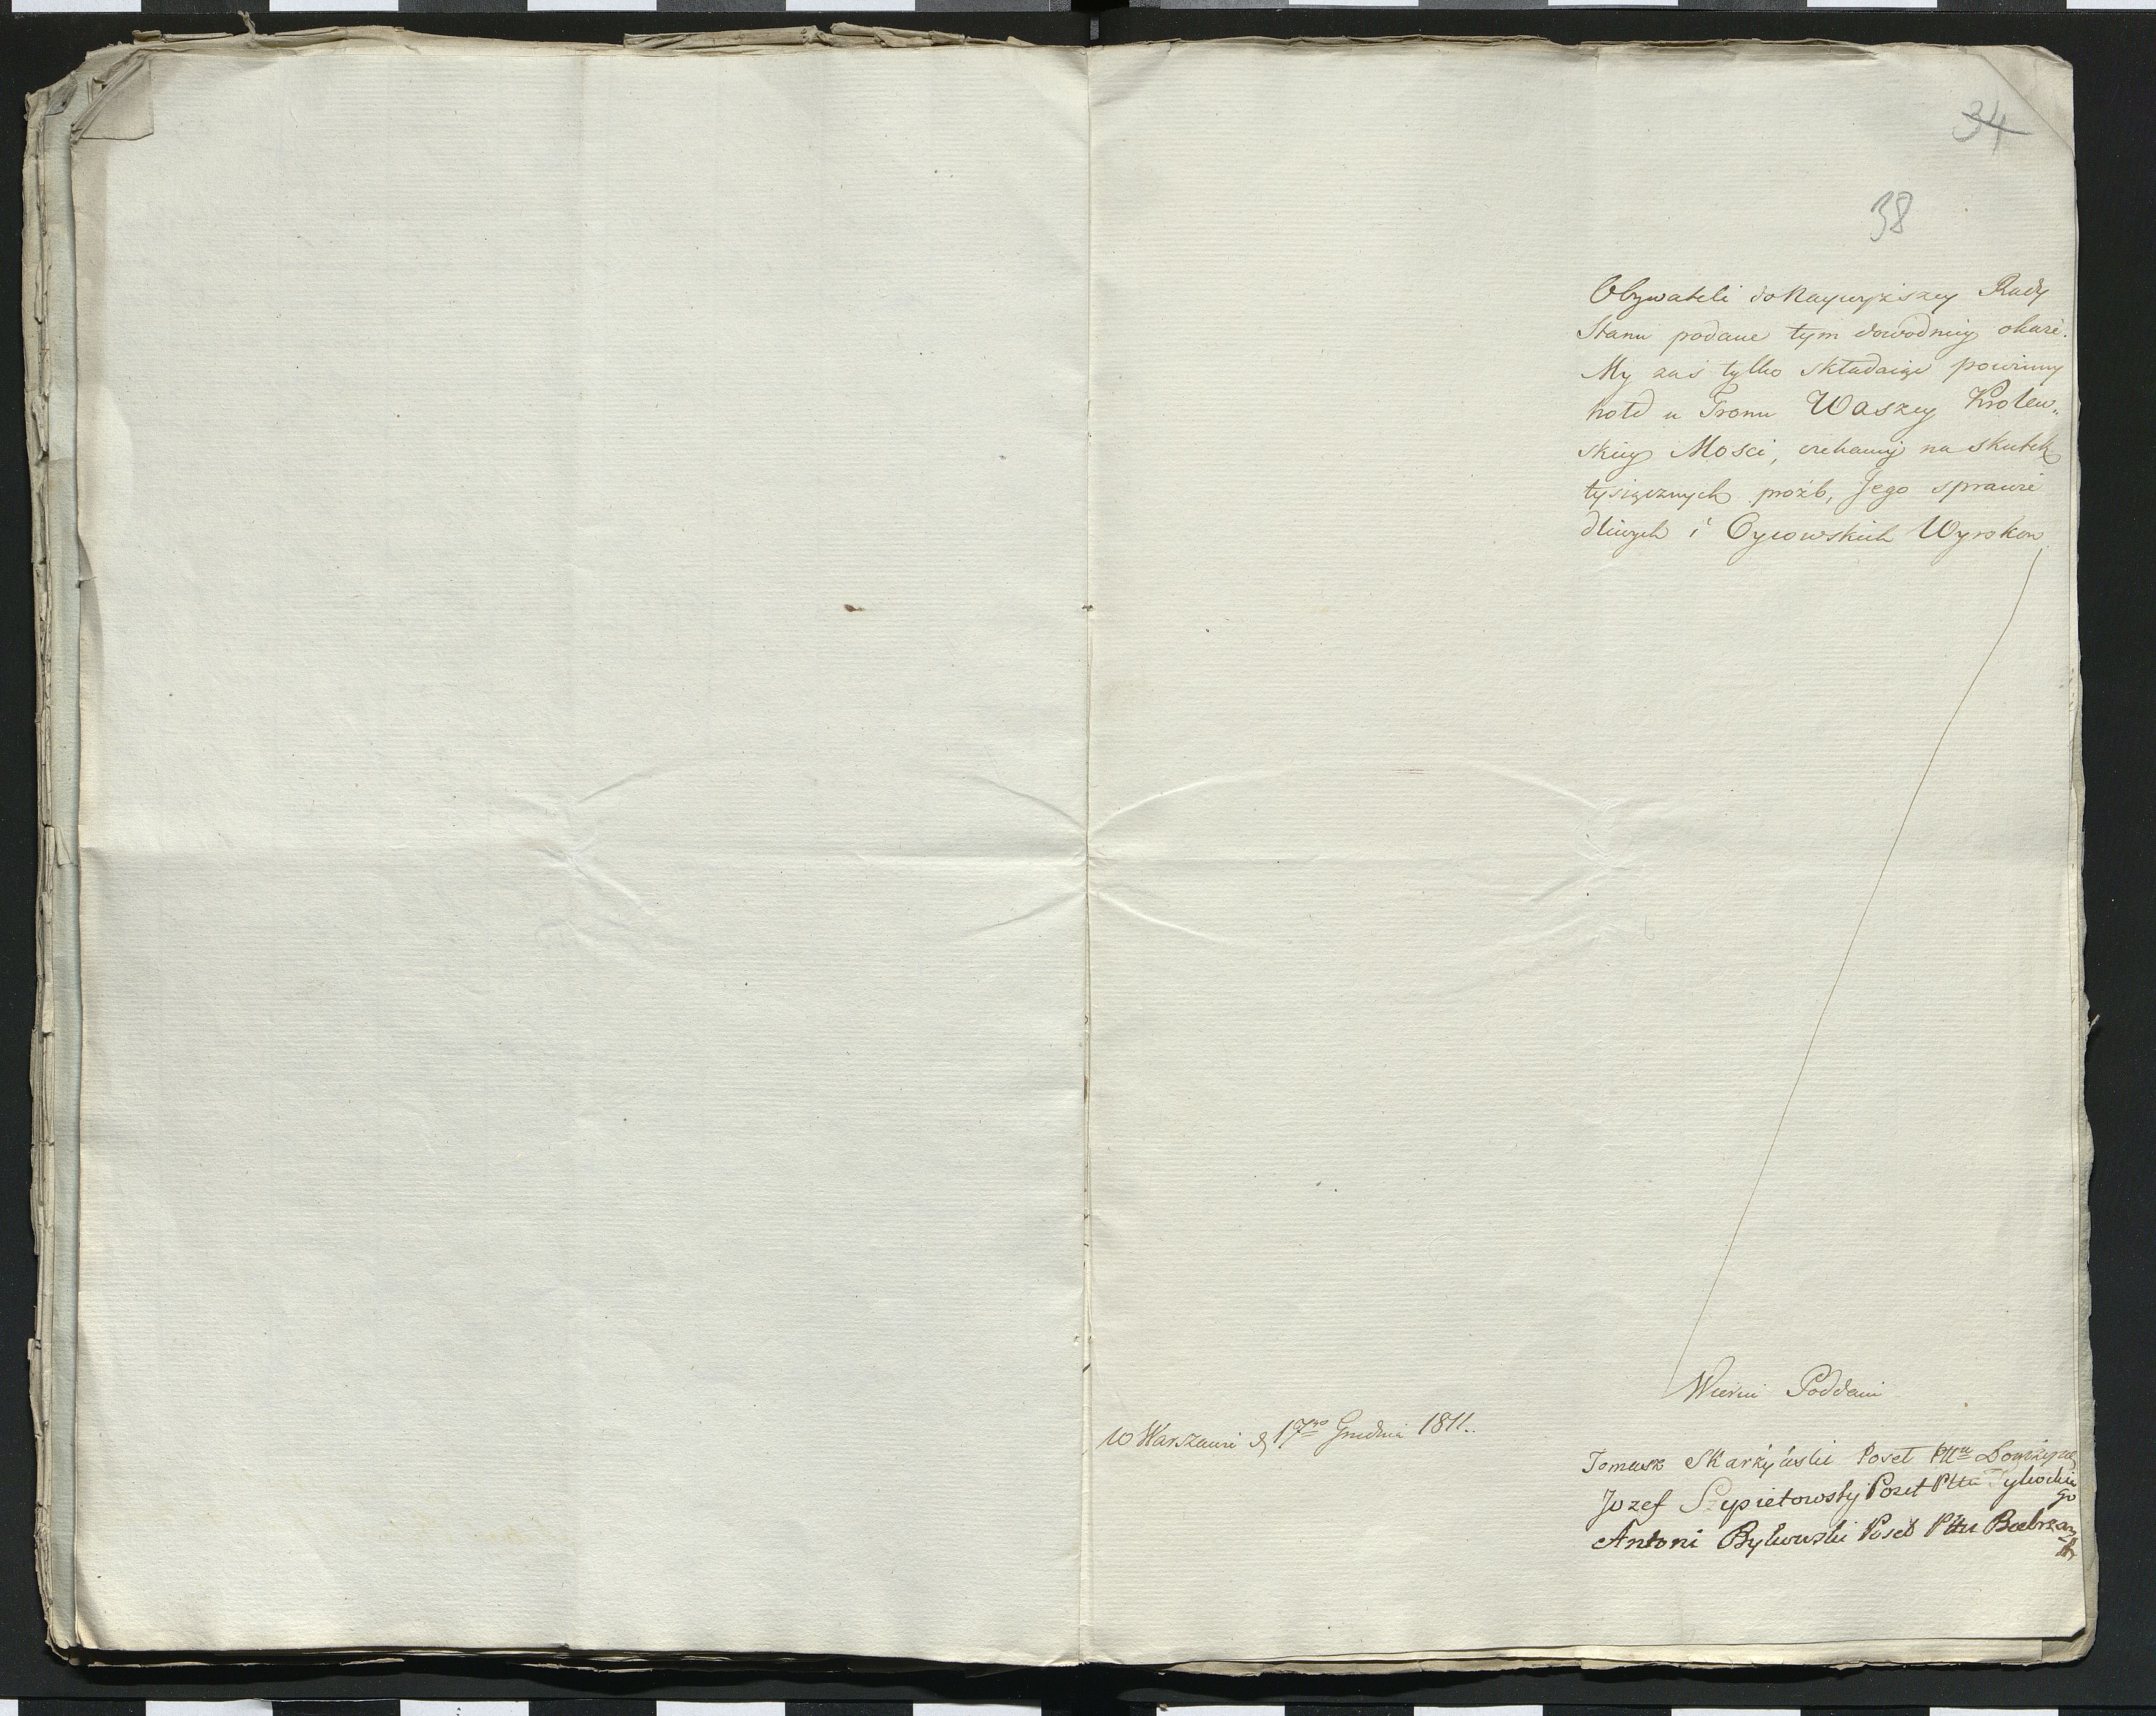 34
38
Obywateli do Naywyższey Rady
Stanu podane tym dowodniey okaże.
My zaś tylko składaiąc powinny
hołd u Tronu Waszey Krolew„
skiey Mości, czekamy na skutek
tysiącznych prożb, Jego sprawie
dliwych i Oycowskich Wyrokow
Wierni Poddani
w Warszawie d 17go Grudnia 1811.
Tomasz Skarżyński Poseł Pttu
Jozef Szepietowsky Poseł Pttu Tykockie
go
Antoni Poseł Pttu